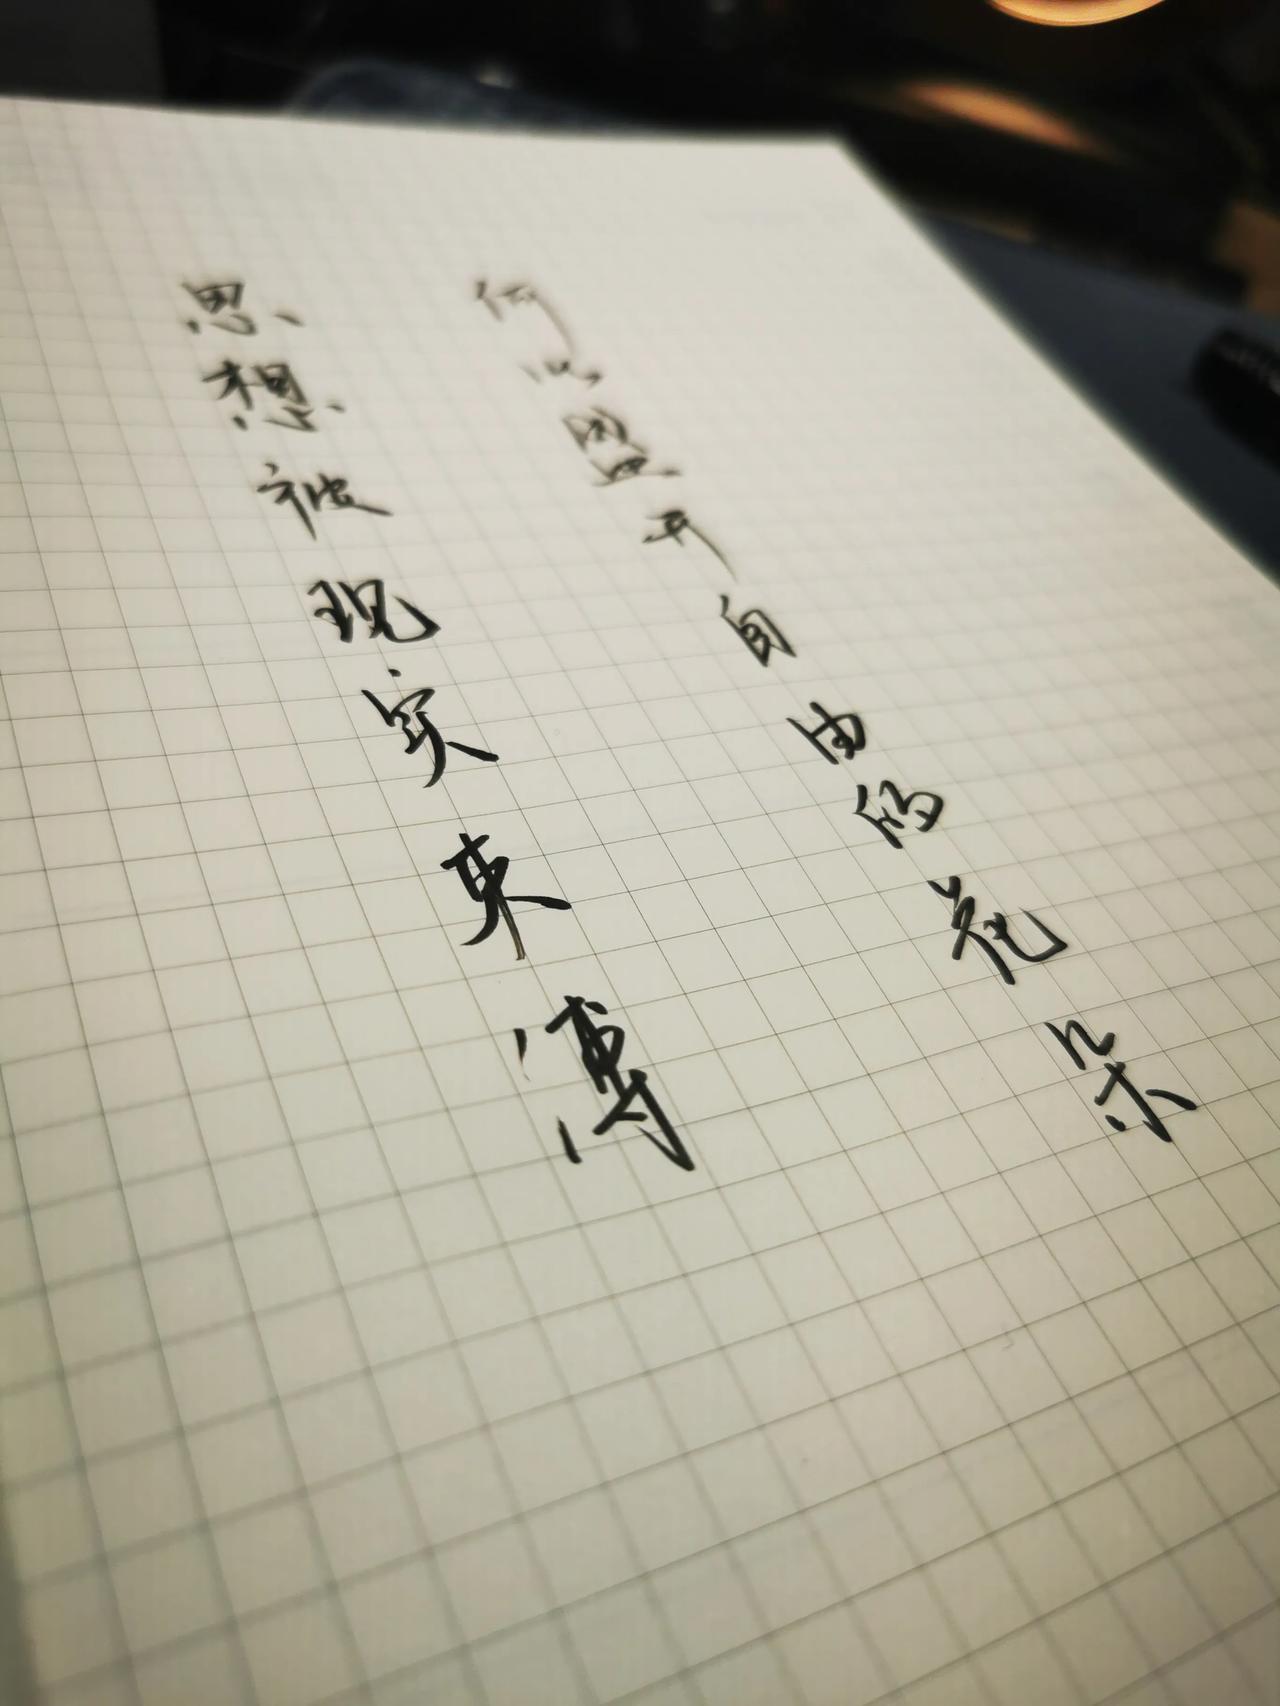 思想被现实束缚
何以盛开自由的花朵